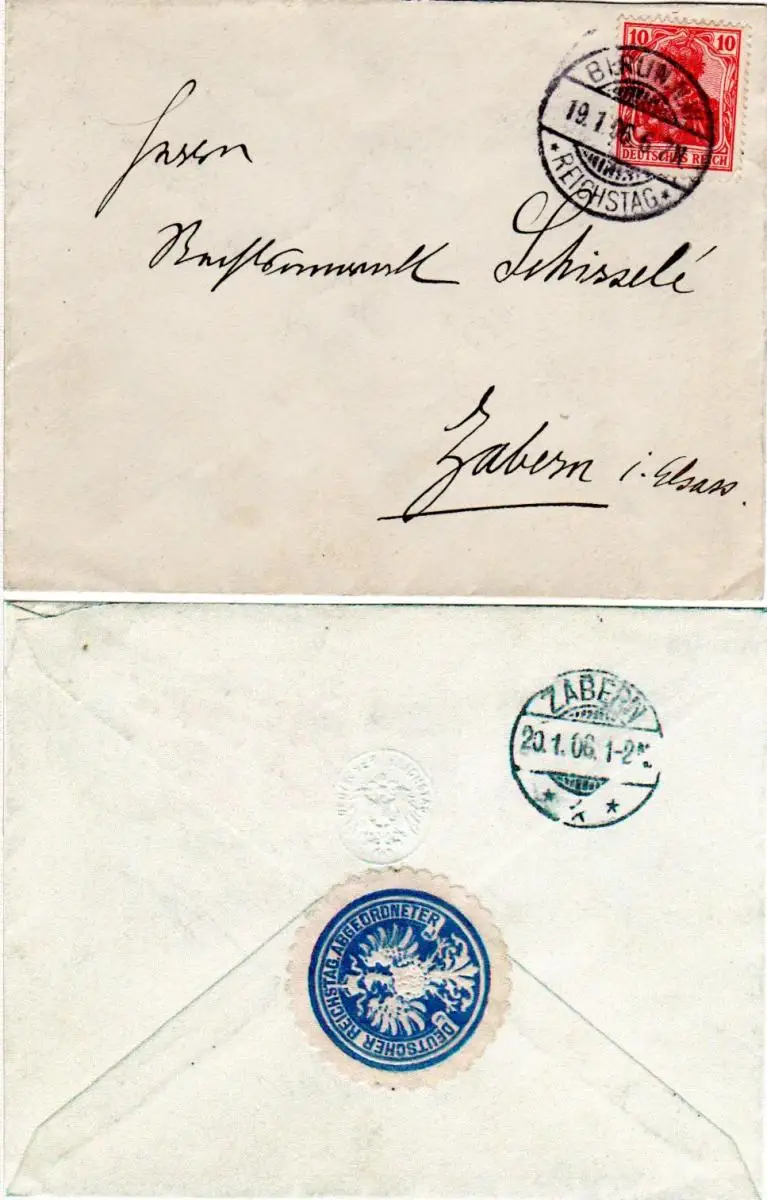 10 10
DEUTSCHES REICH
BERLIN N.W.
19.1.06.6-7N.
* REICHSTAG *
Herrn
Rechtsanwalt Schisselé
Zabern i. Elsass.
ZABERN
20.1.06.1-2N.
* k *
DEUTSCHER REICHSTAG
DEUTSCHER REICHSTAG.ABGEORDNETER